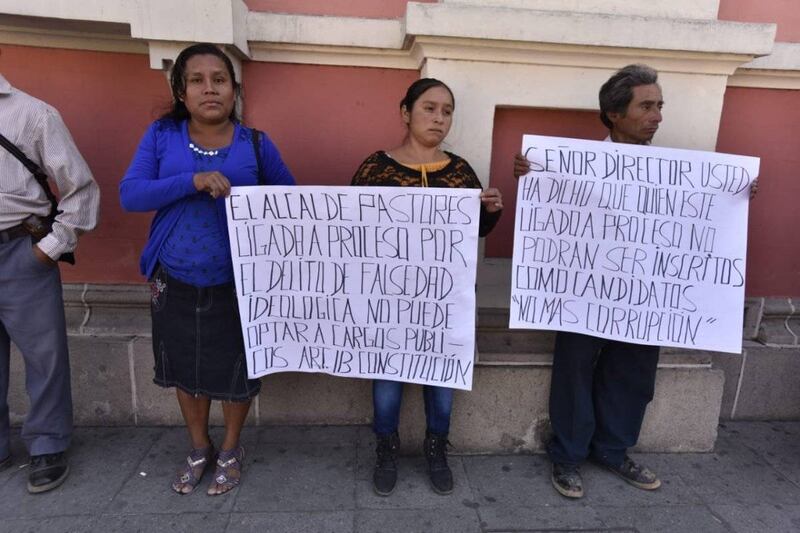 EL ALCALDE PASTORES
LIGADO A PROCESO POR
EL DELITO DE FALSEDAD
IDEOLOGICA NO PUEDE
OPTAR A CARGOS PUBLI-
COS ART. 113 CONSTITUCIÓN
SEÑOR DIRECTOR USTED
HA DICHO QUE QUIEN ESTE
LIGADO A PROCESO NO
PODRAN SER INSCRITOS
COMO CANDIDATOS
"NO MAS CORRUPCIÓN"